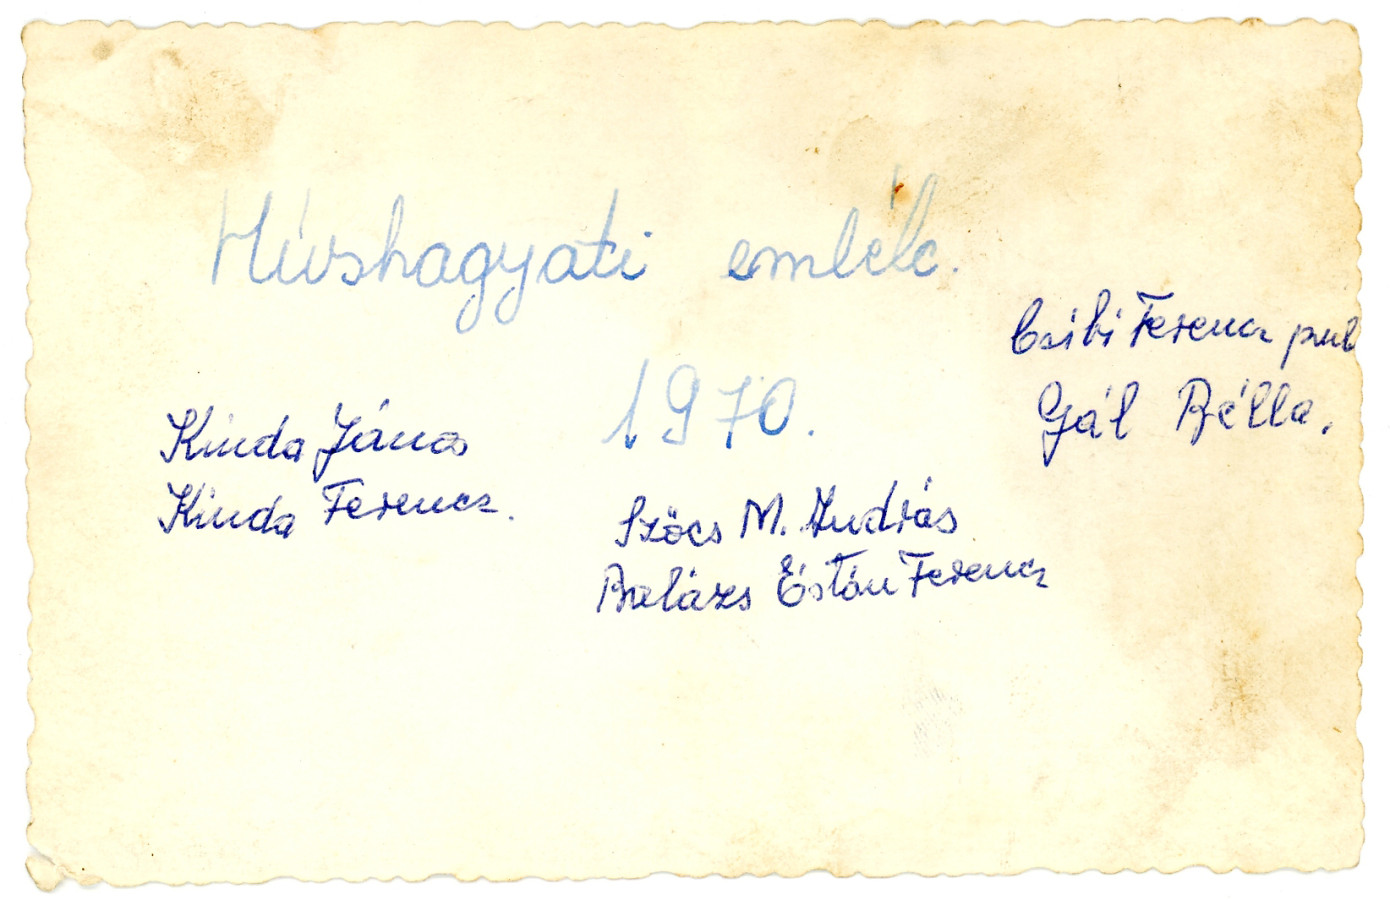 Húshagyati emlék.
1970.
Csibi Ferencz
Gál Bélla.
Kinda János
Kinda Ferencz.
Szőcs M. András
Balázs Ferencz